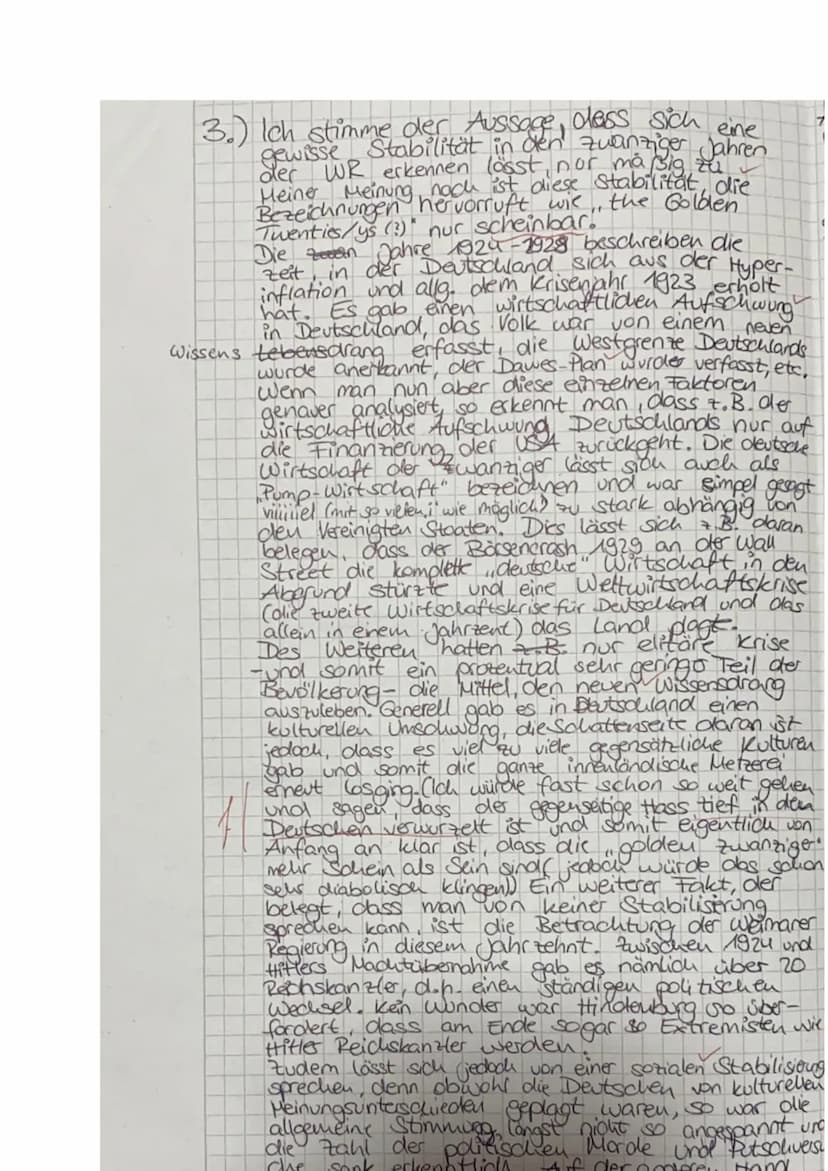 3.) Ich stimme der Aussage, dass sich eine
gewisse Stabilität in den zwanziger Jahren
der WR erkennen lässt, nur mäßig zu
Meiner Meinung nach ist diese Stabilität, die
Bezeichnungen hervorruft wie „the Golden
Twenties/ys (?)" nur scheinbar.
Die Jahre 1924-1928 beschreiben die
Zeit, in der Deutschland sich aus der Hyper-
inflation und allg. dem Krisenjahr 1923 erholt
hat. Es gab einen wirtschaftlichen Aufschwung
in Deutschland, das Volk war von einem neuen
Wissens lebensdrang erfasst, die Westgrenze Deutschlands
wurde anerkannt, der Dawes-Plan wurde verfasst, etc.
Wenn man nun aber diese einzelnen Faktoren
genauer analysiert, so erkennt man, dass z.B. der
wirtschaftliche Aufschwung Deutschlands nur auf
die Finanzierung der USA zurückgeht. Die deutsche
Wirtschaft der Zwanziger lässt sich auch als
„Pump-Wirtschaft" bezeichnen und war simpel gesagt
viiiiiel (mit so vielen „i" wie möglich) zu stark abhängig von
den Vereinigten Staaten. Dies lässt sich z.B. daran
belegen, dass der Börsencrash 1929 an der Wall
Street die komplett „deutsche" Wirtschaft in den
Abgrund stürzte und eine Weltwirtschaftskrise
(die zweite Wirtschaftskrise für Deutschland und das
allein in einem Jahrzent) das Land plagt.
Des Weiteren hatten z.B. nur elitäre Krise
- und somit ein protentual sehr geringo Teil der
Bevölkerung - die Mittel, den neuen Wissensdrang
auszuleben. Generell gab es in Deutschland einen
kulturellen Umschwung, die Schattenseite daran ist
jedoch, dass es viel zu viele gegensätzliche Kulturen
gab und somit die ganze innenländische Metzerei
erneut losging. (Ich würde fast schon so weit gehen
und sagen, dass der gegenseitige Hass tief in den
Deutschen verwurzelt ist und somit eigentlich von
Anfang an klar ist, dass die „golden zwanziger"
mehr Schein als Sein sind( jedoch würde das schon
sehr diabolisch klingen)) Ein weiterer Fakt, der
belegt, dass man von keiner Stabilisierung
sprechen kann, ist die Betrachtung der Weimarer
Regierung in diesem Jahrzehnt. Zwischen 1924 und
Hitlers Machtübernahme gab es nämlich über 20
Reichskanzler, d.h. einen ständigen politischen
Wechsel. Kein Wunder war Hindenburg so über-
fordert, dass am Ende sogar so Extremisten wie
Hitler Reichskanzler werden.
Zudem lässt sich jedoch von einer sozialen Stabilisierung
sprechen, denn obwohl die Deutschen von kulturellen
Meinungsunterschieden geplagt waren, so war die
allgemeine Stimmung längst nicht so angespannt und
die Zahl der politischen Morde und Putschversu
che sank erkenntlich. Auf der